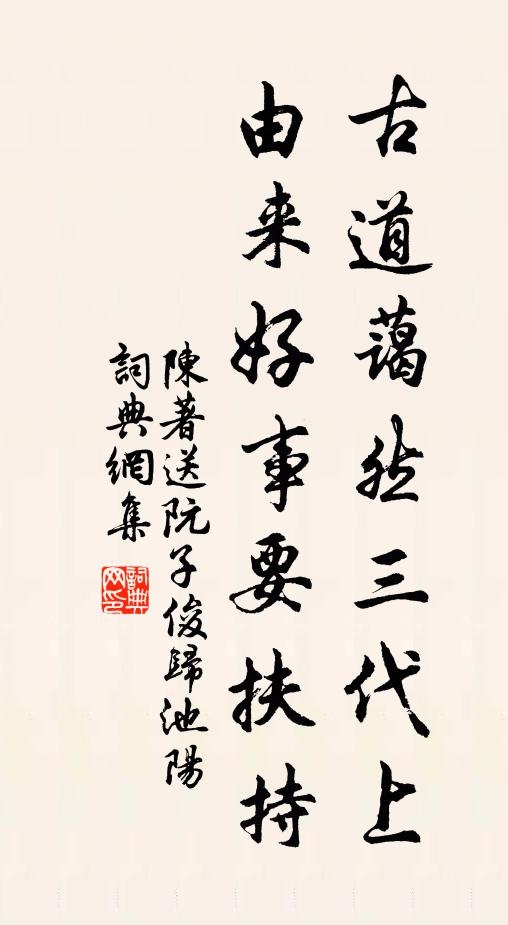 古道藹然三代上
由来好事要扶持
陳著送阮子俊歸池陽
詞典網集
詞典网印